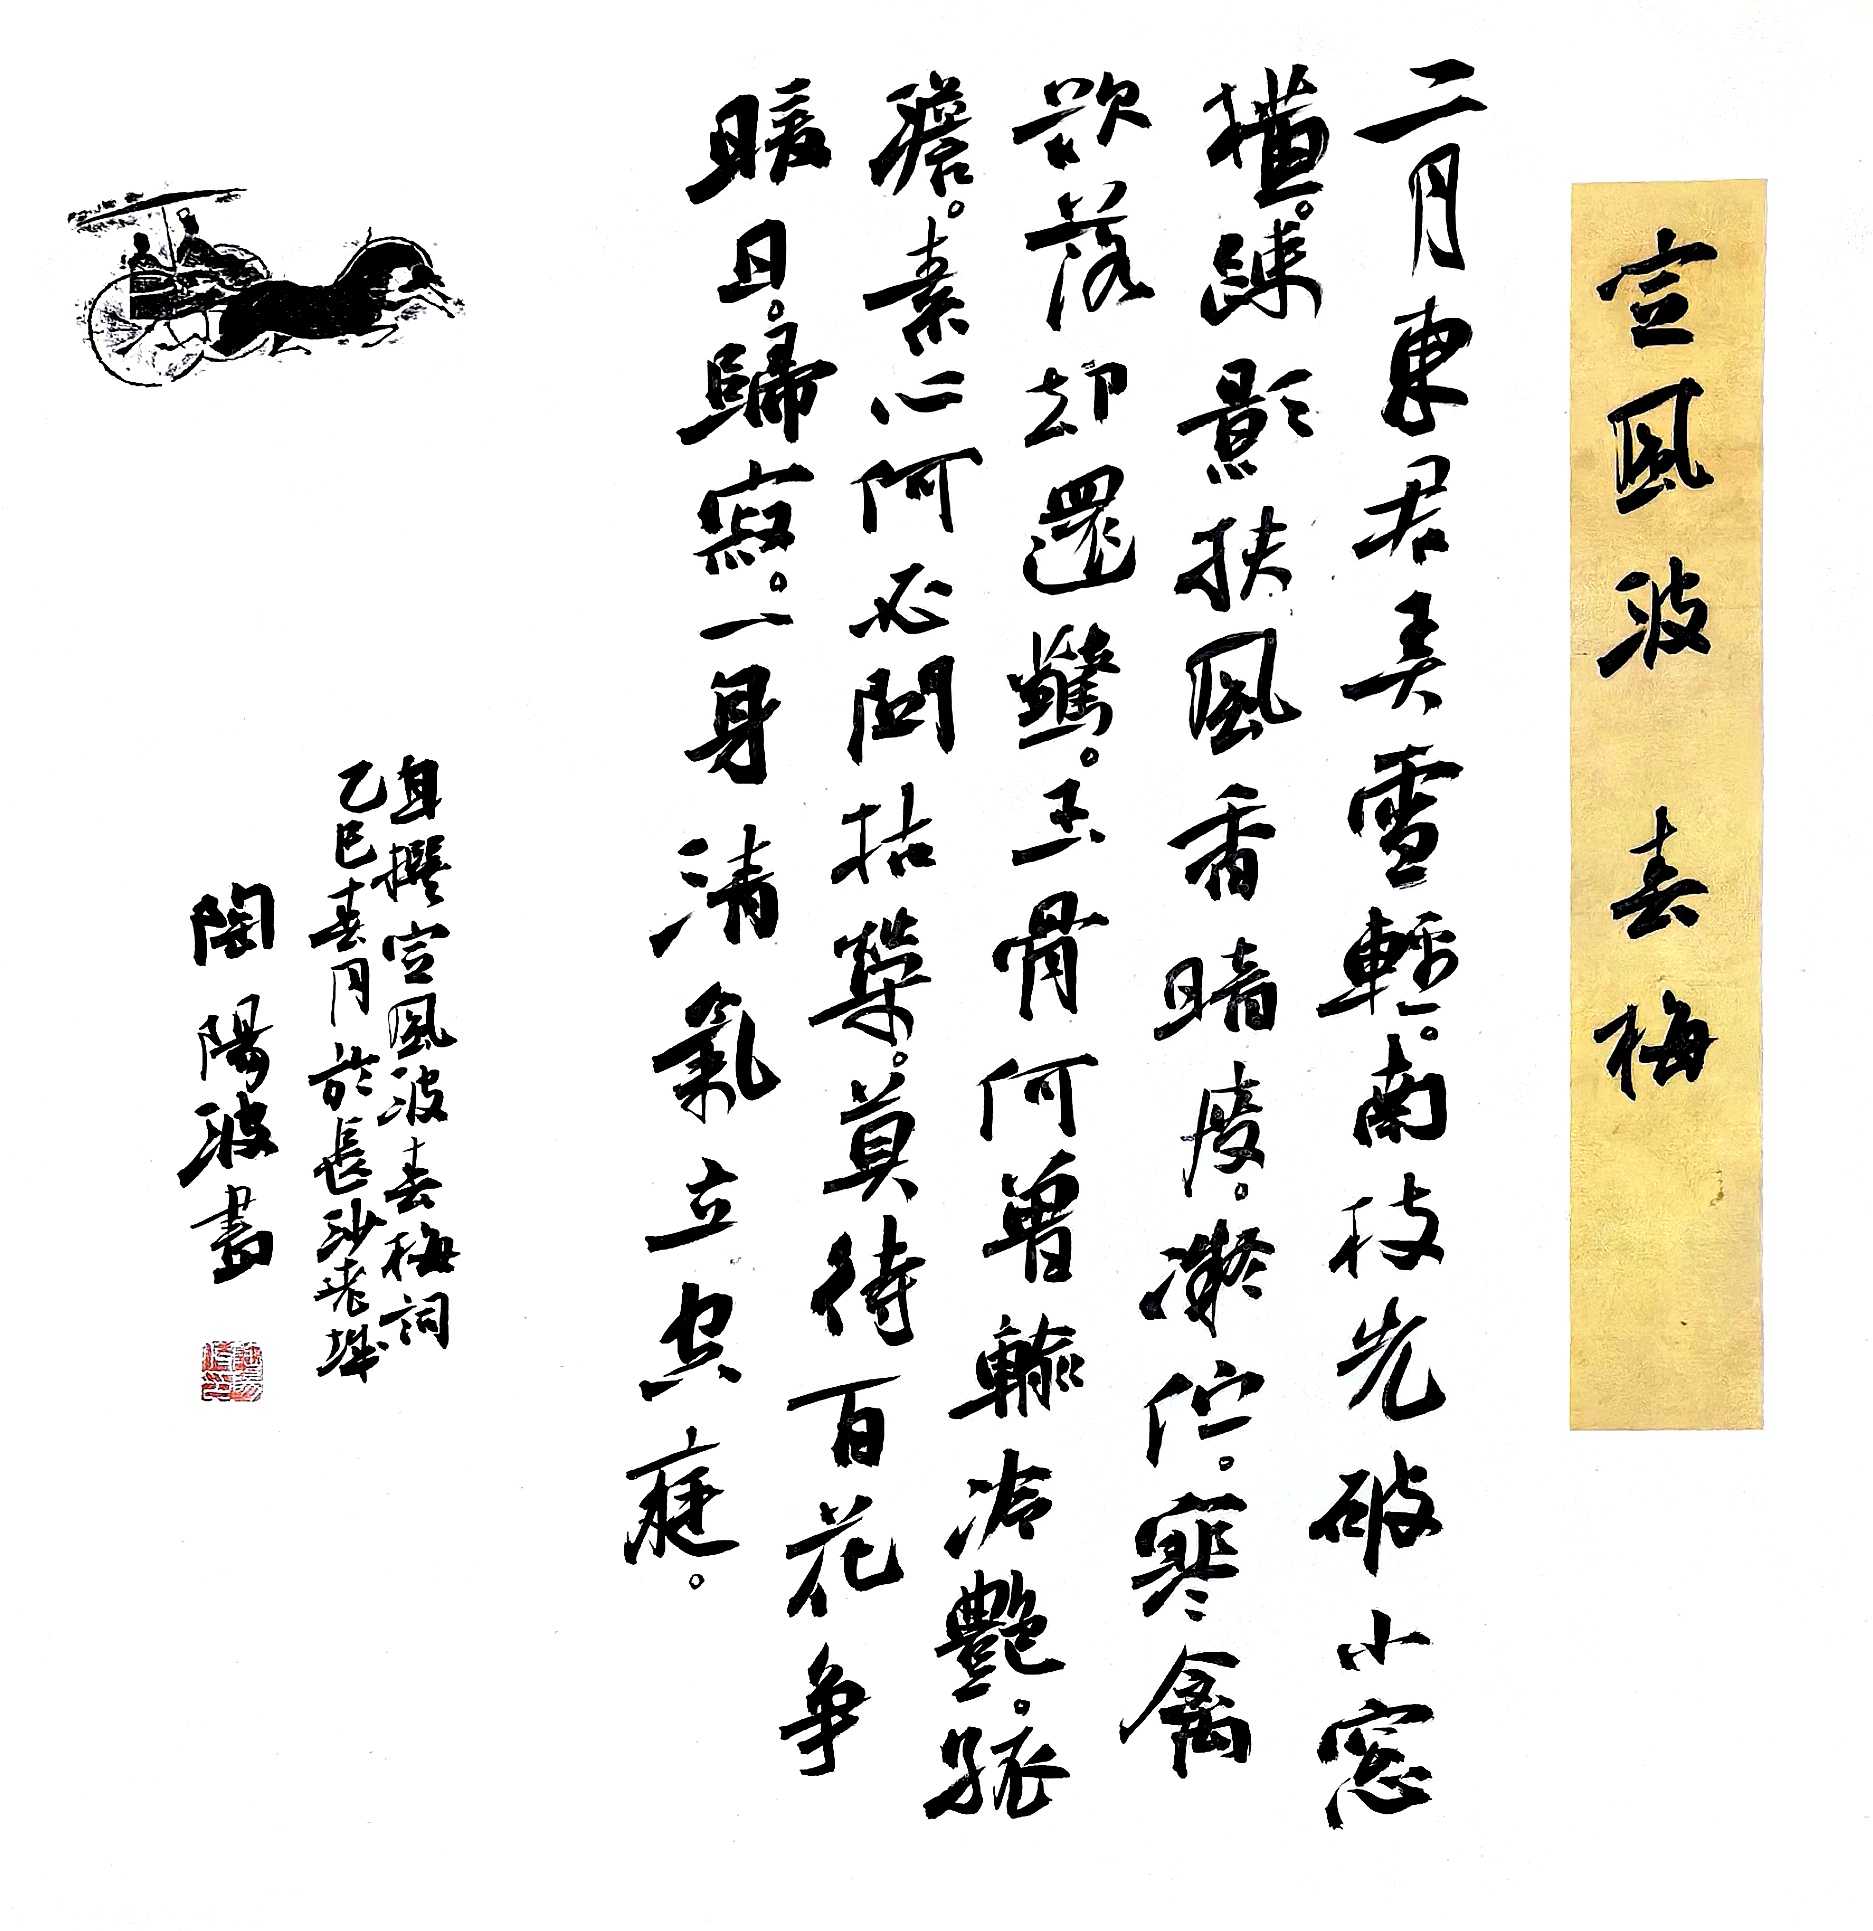 定風波 春梅
二月東君弄雪輕。南枝先破小窓
橫。疎影扶風香暗度。凝佇。寒禽
欲落却還驚。玉骨何曾輸冷艷。孤
澹。素心何必問枯榮。莫待百花爭
暖日。歸寂。一身清氣立空庭。
自撰定風波春梅詞
乙巳春月於長沙老城
陶陽波書